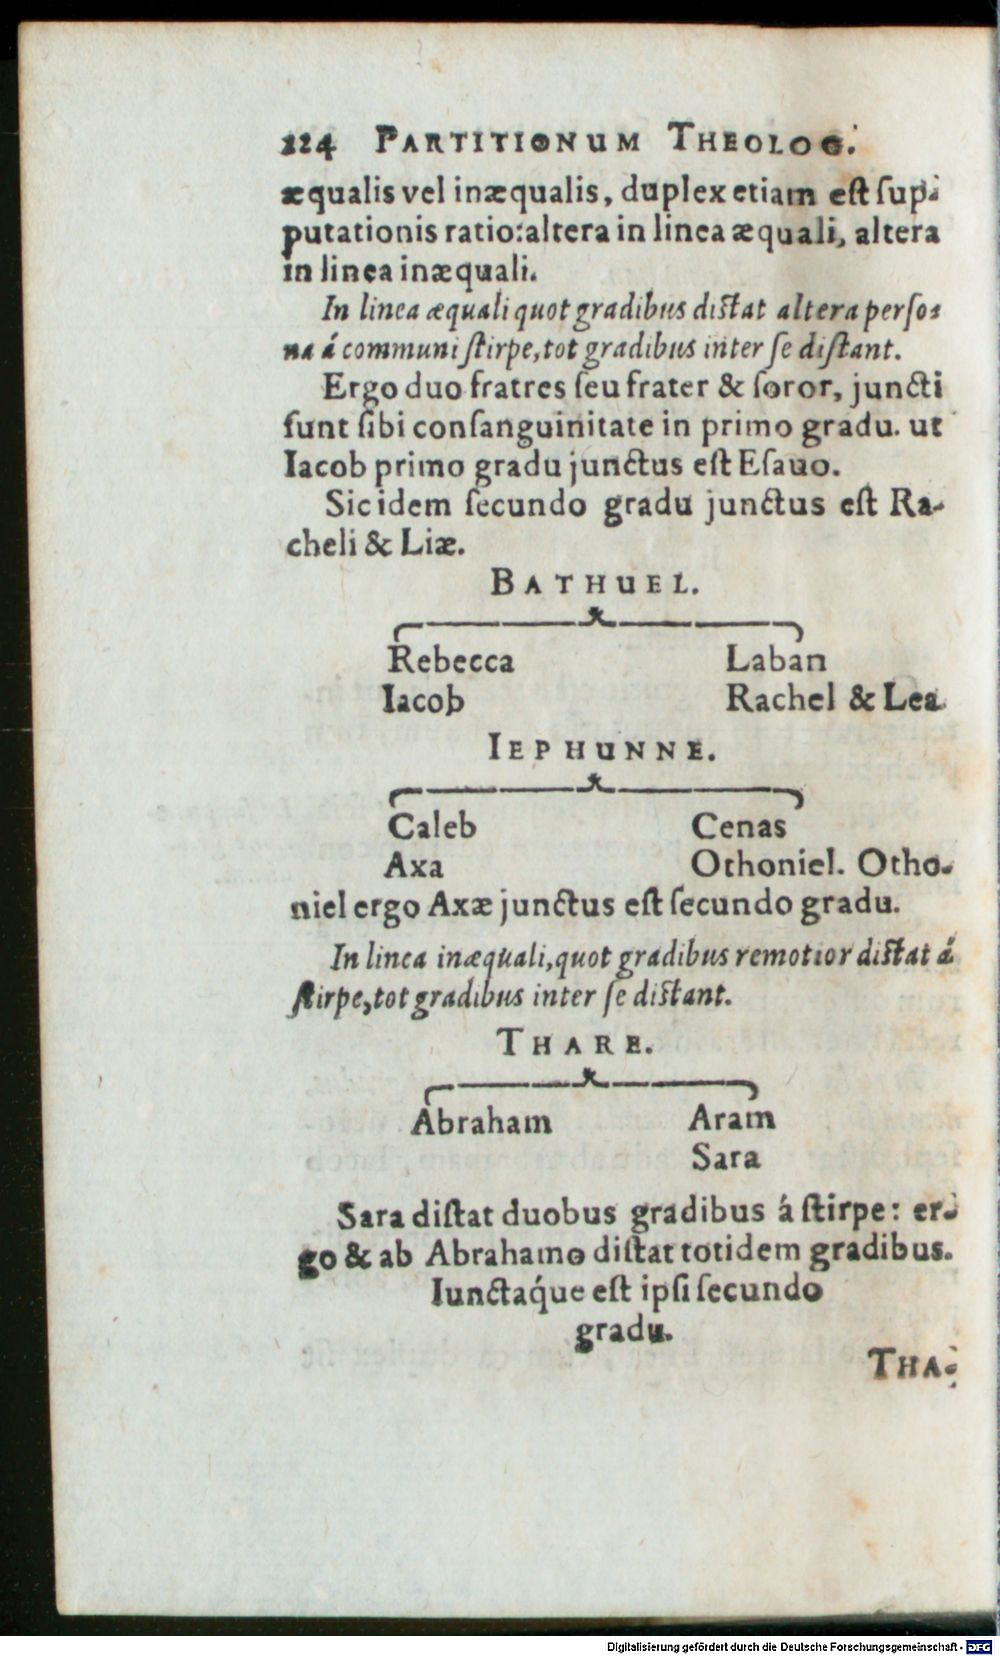 224 PARTITIONUM THEOLOG.
æqualis vel inæqualis, duplex etiam est ſup-
putationis ratio: altera in linea æquali, altera
in linea inæquali.
In linea æquali quot gradibus diſtat altera perſo-
na á communi ſtirpe, tot gradibus inter ſe diſtant.
Ergo duo fratres ſeu frater & ſoror, juncti
ſunt ſibi conſanguinitate in primo gradu. ut
Iacob primo gradu junctus eſt Eſauo.
Sic idem ſecundo gradu junctus eſt Ra-
cheli & Liæ.
BATHUEL.
Rebecca Laban
Iacob Rachel & Lea
IEPHUNNE.
Caleb Cenas
Axa Othoniel. Otho-
niel ergo Axæ junctus eſt ſecundo gradu.
In linea inæquali, quot gradibus remotior diſtat á
ſtirpe, tot gradibus inter ſe diſtant.
THARE.
Abraham Aram
Sara
Sara diſtat duobus gradibus á ſtirpe: er-
go & ab Abrahamo diſtat totidem gradibus.
Iunctáque eſt ipſi ſecundo
gradu.
THA-
Digitalisierung gefördert durch die Deutsche Forschungsgemeinschaft - DFG